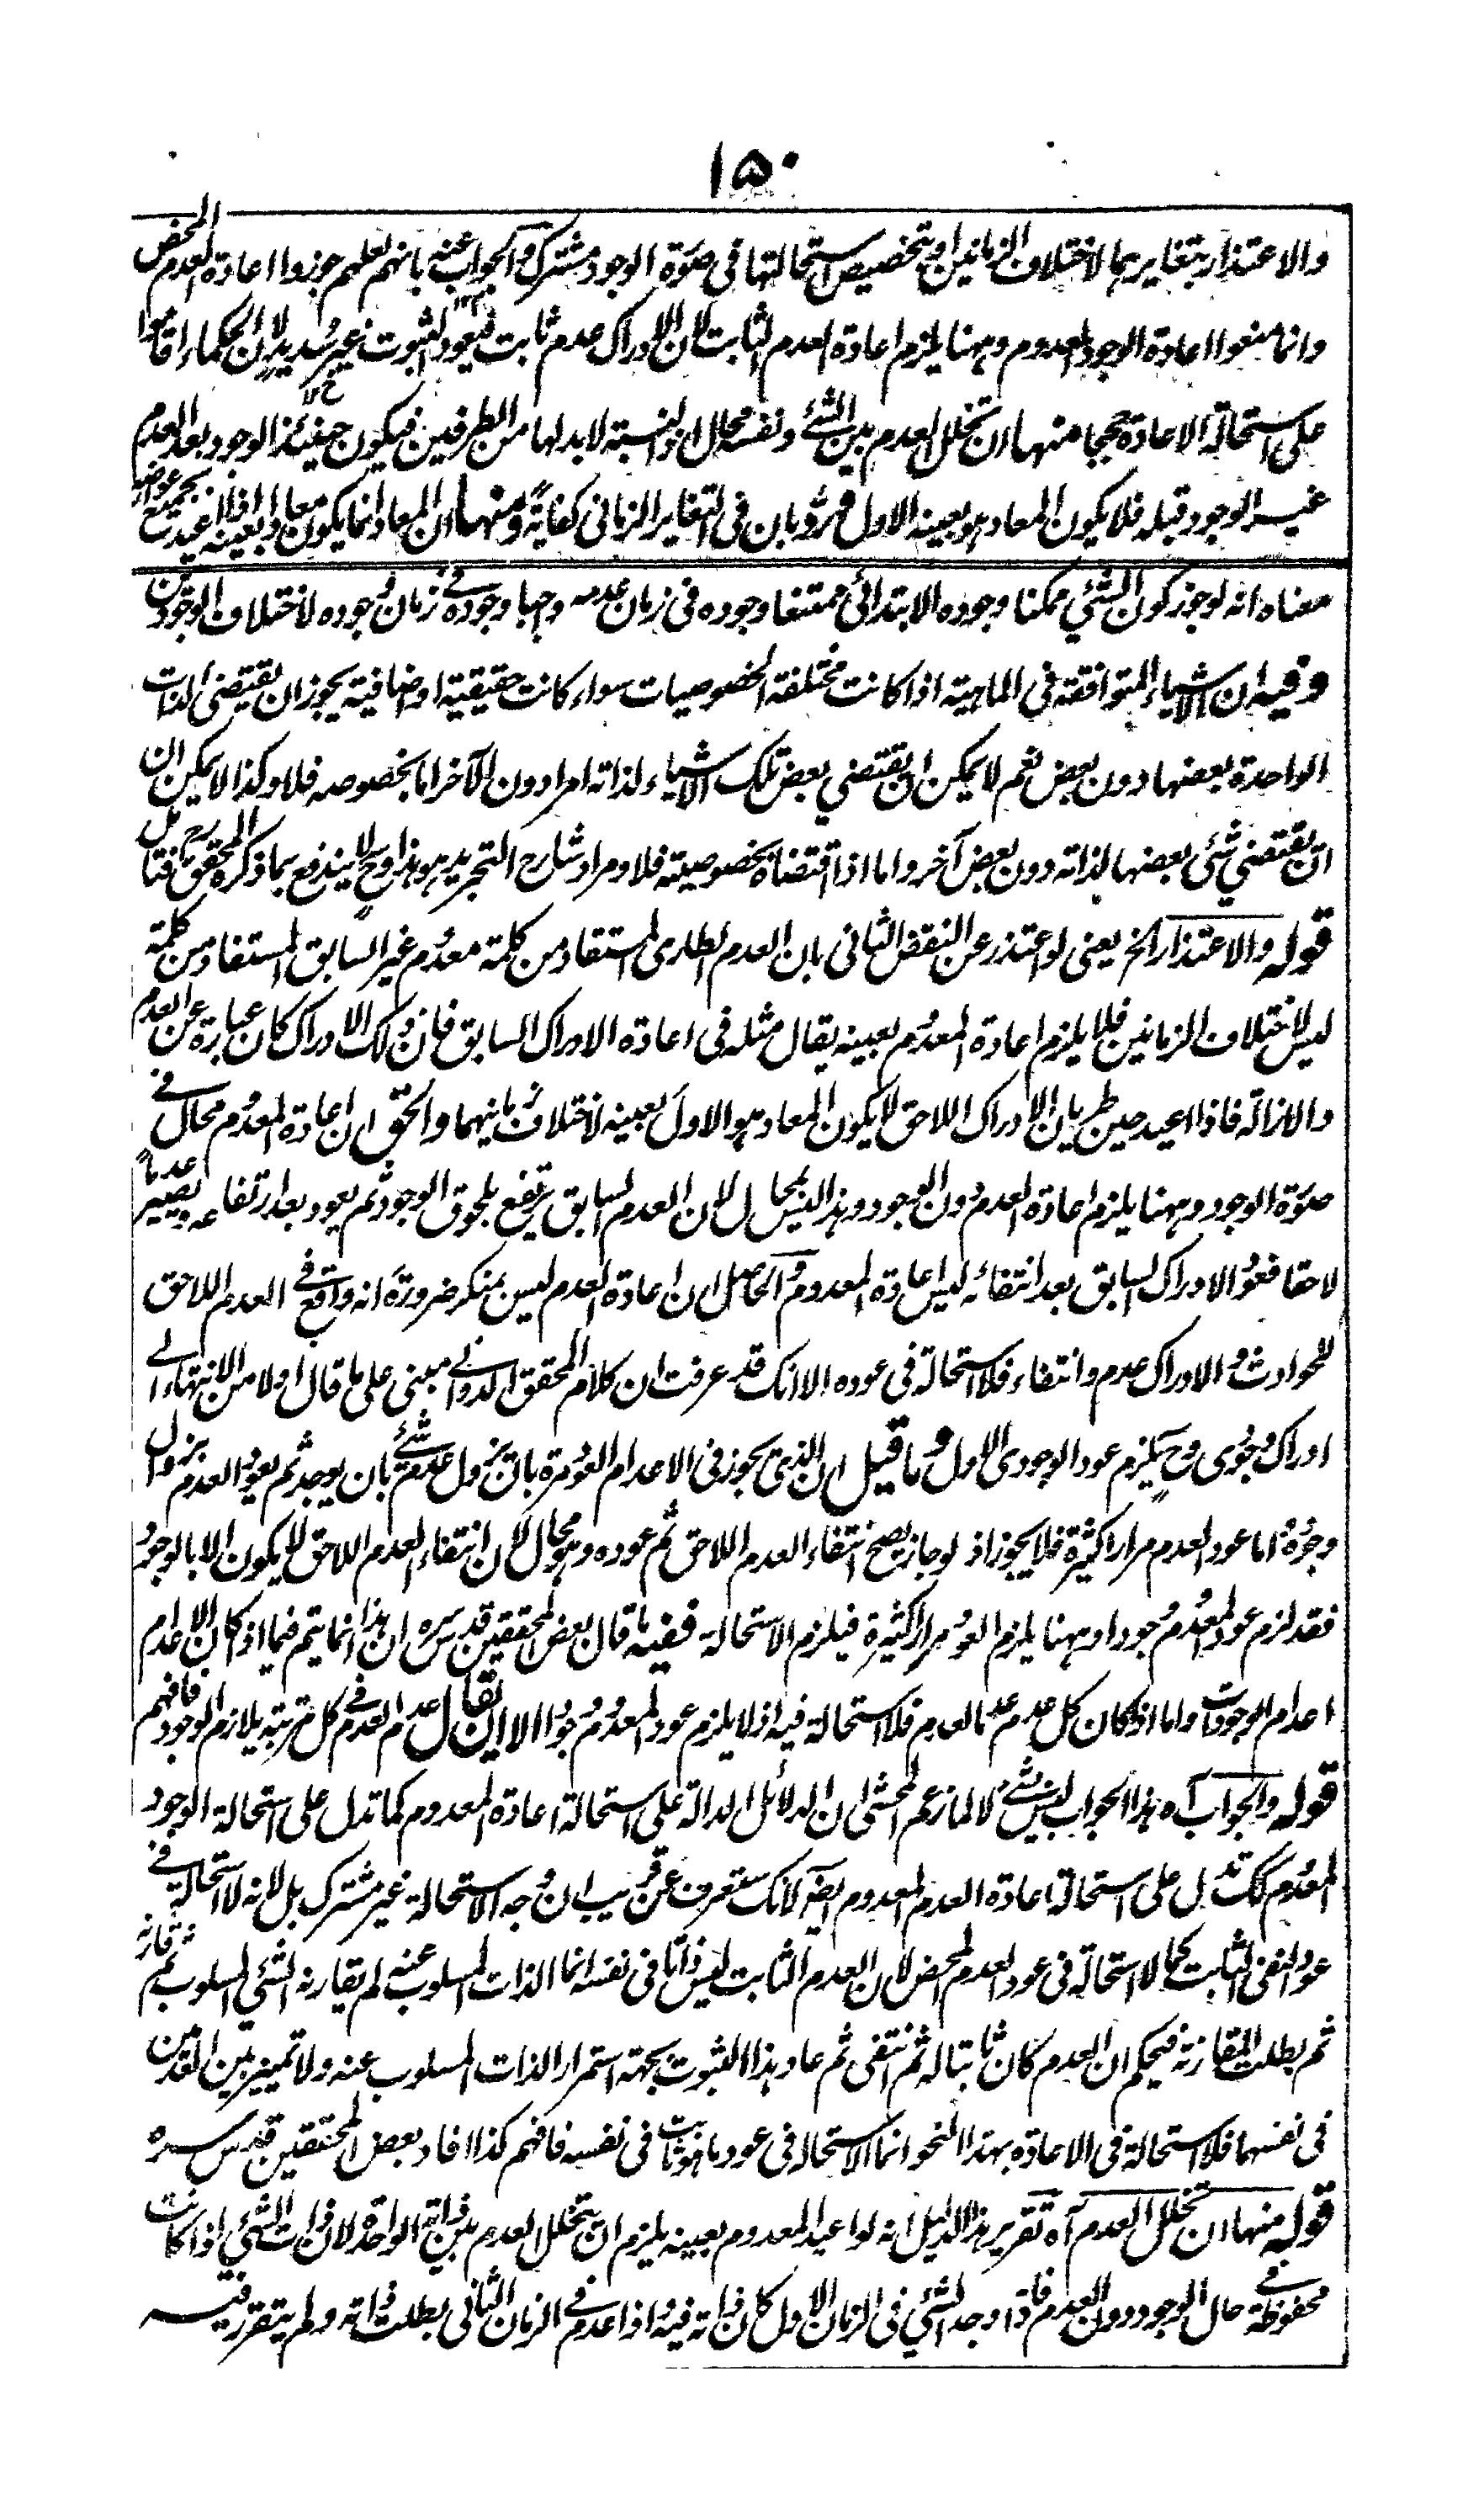 ١٥٠
والاعتذار بتغايرهما لاختلاف الزمانين او بتخصيص استحالتها فى صورة الوجود مشترك والجواب عنه بانهم لعلهم جوزوا اعادة العدم المحض
وانما منعوا اعادة الوجود المعدوم وههنا يلزم اعادة العدم الثابت لان الادراك عدم ثابت فيعود الثبوت غير سديد لان الحكماء اقاموا
على استحالة الاعادة حججا منها ان تخلل العدم بين الشئ ونفسه محال اذ النسبة لا بد لها من الطرفين فيكون حينئذ الوجود بعد العدم
غير الوجود قبله فلا يكون المعاد هو بعينه الاول ورد بان فى التغاير الزمانى كفاية ومنها ان المعاد انما يكون معادا بعينه اذا اعيد بجميع عوارضه
معناه انه لو جوز كون الشئ ممكنا وجوده الابتدائى ممتنعا وجوده فى زمان عدمه واجبا وجوده فى زمان وجوده لاختلاف الوجودين
وفيه ان الاشياء المتوافقة فى الماهية اذا كانت مختلفة الخصوصيات سواء كانت حقيقية او اضافية يجوز ان يقتضى الذات
الواحدة بعضها دون بعض نعم لا يمكن ان يقتضى بعض تلك الاشياء لذاته امرا دون الآخر اما بخصوصه فلا وكذا لا يمكن ان
ان يقتضى شئ بعضها لذاته دون بعض آخر واما اذا اقتضاه بخصوصيته فلا ومراد شارح التجريد هو هذا وح لا يندفع بما ذكره المحقق فتامل
قوله والاعتذار الخ يعنى لو اعتذر عن النقض الثانى بان العدم الطارى المستفاد من كلمة معدوم غير السابق المستفاد من كلمة
ليس لاختلاف الزمانين فلا يلزم اعادة المعدوم بعينه يقال مثله فى اعادة الادراك السابق فان ذلك الادراك كان عبارة عن العدم
والازالة فاذا اعيد حين طريان الادراك اللاحق لا يكون المعاد هو الاول بعينه لاختلاف زمانيهما والحق ان اعادة المعدوم محال فى
صورة الوجود وههنا يلزم اعادة العدم دون الوجود وهذا ليس بمحال لان العدم السابق يرتفع بلحوق الوجود ثم يعود بعد ارتفاعه ويصير عدما
لاحقا فعود الادراك السابق بعد انتفائه ليس اعادة المعدوم والحاصل ان اعادة العدم ليس بمنكر ضرورة انه واقع فى العدم اللاحق
للحوادث والادراك عدم وانتفاء فلا استحالة فى عوده الا انك قد عرفت ان كلام المحقق الدوانى مبنى على ما قال اولا من الانتهاء الى
ادراك وجودى وح يلزم عود الوجودى الاول وما قيل ان الذى يجوز فى الاعدام العود مرة بان يزول عدم شئ بان يوجد ثم يعود العدم بزوال
وجوده اما عود العدم مرارا كثيرة فلا يجوز اذ لو جاز يصح انتفاء العدم اللاحق ثم عوده وهو محال لان انتفاء العدم اللاحق لا يكون الا بالوجود
فقد لزم عود المعدوم موجودا وههنا يلزم العود مرارا كثيرة فيلزم الاستحالة ففيه ما قال بعض المحققين قدس سره ان هذا انما يتم فيما اذا كان الاعدام
اعدام الوجودات واما اذا كان كل عدم عدما لعدم فلا استحالة فيه اذ لا يلزم عود المعدوم موجودا الا ان يقال عدم العدم فى كل مرتبة يلازم الوجود فافهم
قوله والجواب آه هذا الجواب ليس بشئ لا لما زعم المحشى ان الدلائل الدالة على استحالة اعادة المعدوم كما تدل على استحالة الوجود
المعدوم كك تدل على استحالة اعادة العدم المعدوم ايضا لانك ستعرف عن قريب ان وجه الاستحالة غير مشترك بل لانه لا استحالة فى
عود النفى الثابت كما لا استحالة فى عود العدم المحض لان العدم الثابت ليس ذاتا فى نفسه انما الذات المسلوب عنه لم يقارنه الشئ المسلوب ثم قارنه
ثم بطلت المقارنة فيحكم ان العدم كان ثابتا له ثم انتفى ثم عاد هذا الثبوت بجهة استمرار الذات المسلوب عنه ولا تميز بين العدمين
فى نفسها فلا استحالة فى الاعادة بهذا النحو انما الاستحالة فى عود ما هو ثابت فى نفسه فافهم كذا افاد بعض المحققين قدس سره
قوله منها ان تخلل العدم آه تقرير هذا الدليل انه لو اعيد المعدوم بعينه يلزم ان يتخلل العدم بين ذاته الواحدة لان ذات الشئ اذا كانت
محفوظة فى حال الوجود دون العدم فاذا وجد الشئ فى الزمان الاول كان ذاته فيه واذا عدم فى الزمان الثانى بطلت ذاته ولم يتقرر فيه